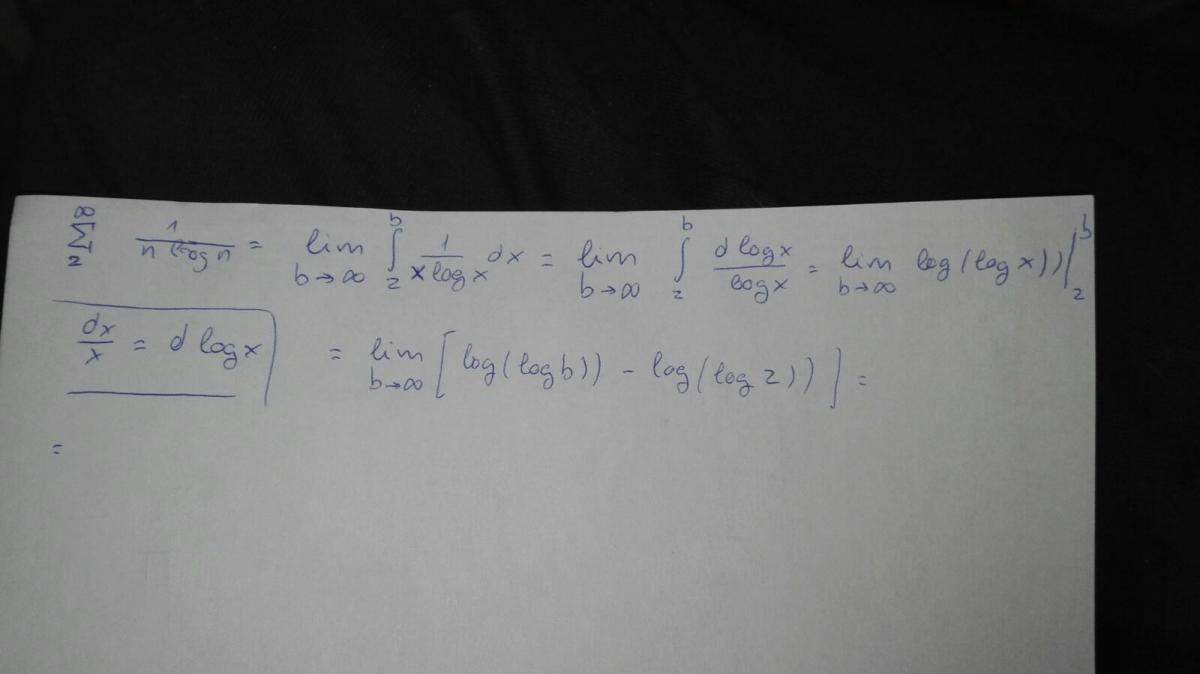 ∞ Σ 2 1/(n log n) = lim b→∞ ∫ 2 b 1/(x log x) dx = lim b→∞ ∫ 2 b (d log x)/(log x) = lim b→∞ log(log x)) | 2 b
dx/x = d log x = lim b→∞ [ log(log b)) - log(log 2)) ] =
=